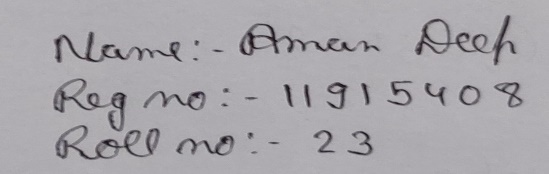 Name:- Aman Deep
Reg no:- 11915408
Roll no:- 23